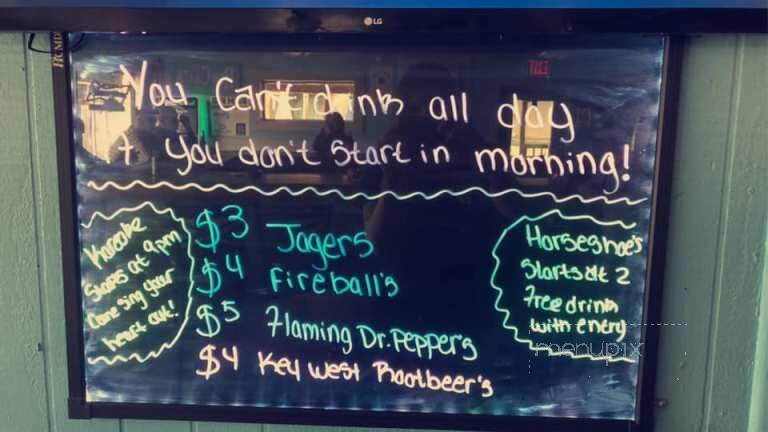 LG
You Can't drink all day
f you don't start in morning!
Karaoke
Starts at 9pm
Come sing your
heart out!
$3 Jagers
$4 Fireball's
$5 Flaming Dr. Pepper's
$4 Key West Rootbeer's
Horseshoe's
Starts at 2
Free drink
with entry
menupix